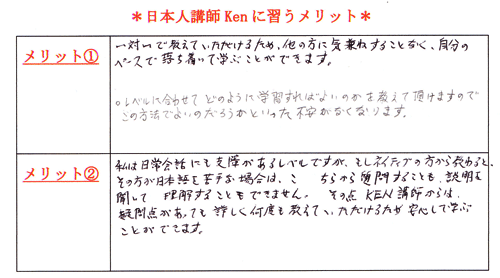 ＊日本人講師 Ken に習うメリット＊
メリット①
一対一で教えていただけるため、他の方に気兼ねすることなく、自分の
ペースで落ち着いて学ぶことができます。
。レベルに合わせて どのように学習すればよいのかを教えて頂けますので
この方法でよいのだろうかといった不安がなくなります。
メリット②
私は日常会話にも支障があるレベルですが、もしネイティブの方から教わると、
その方が日本語を苦手な場合は、こちらから質問することも、説明を
聞いて 理解することもできません。 その点 KEN 講師からは、
疑問点があっても詳しく何度も教えていただけるため安心して学ぶ
ことができます。